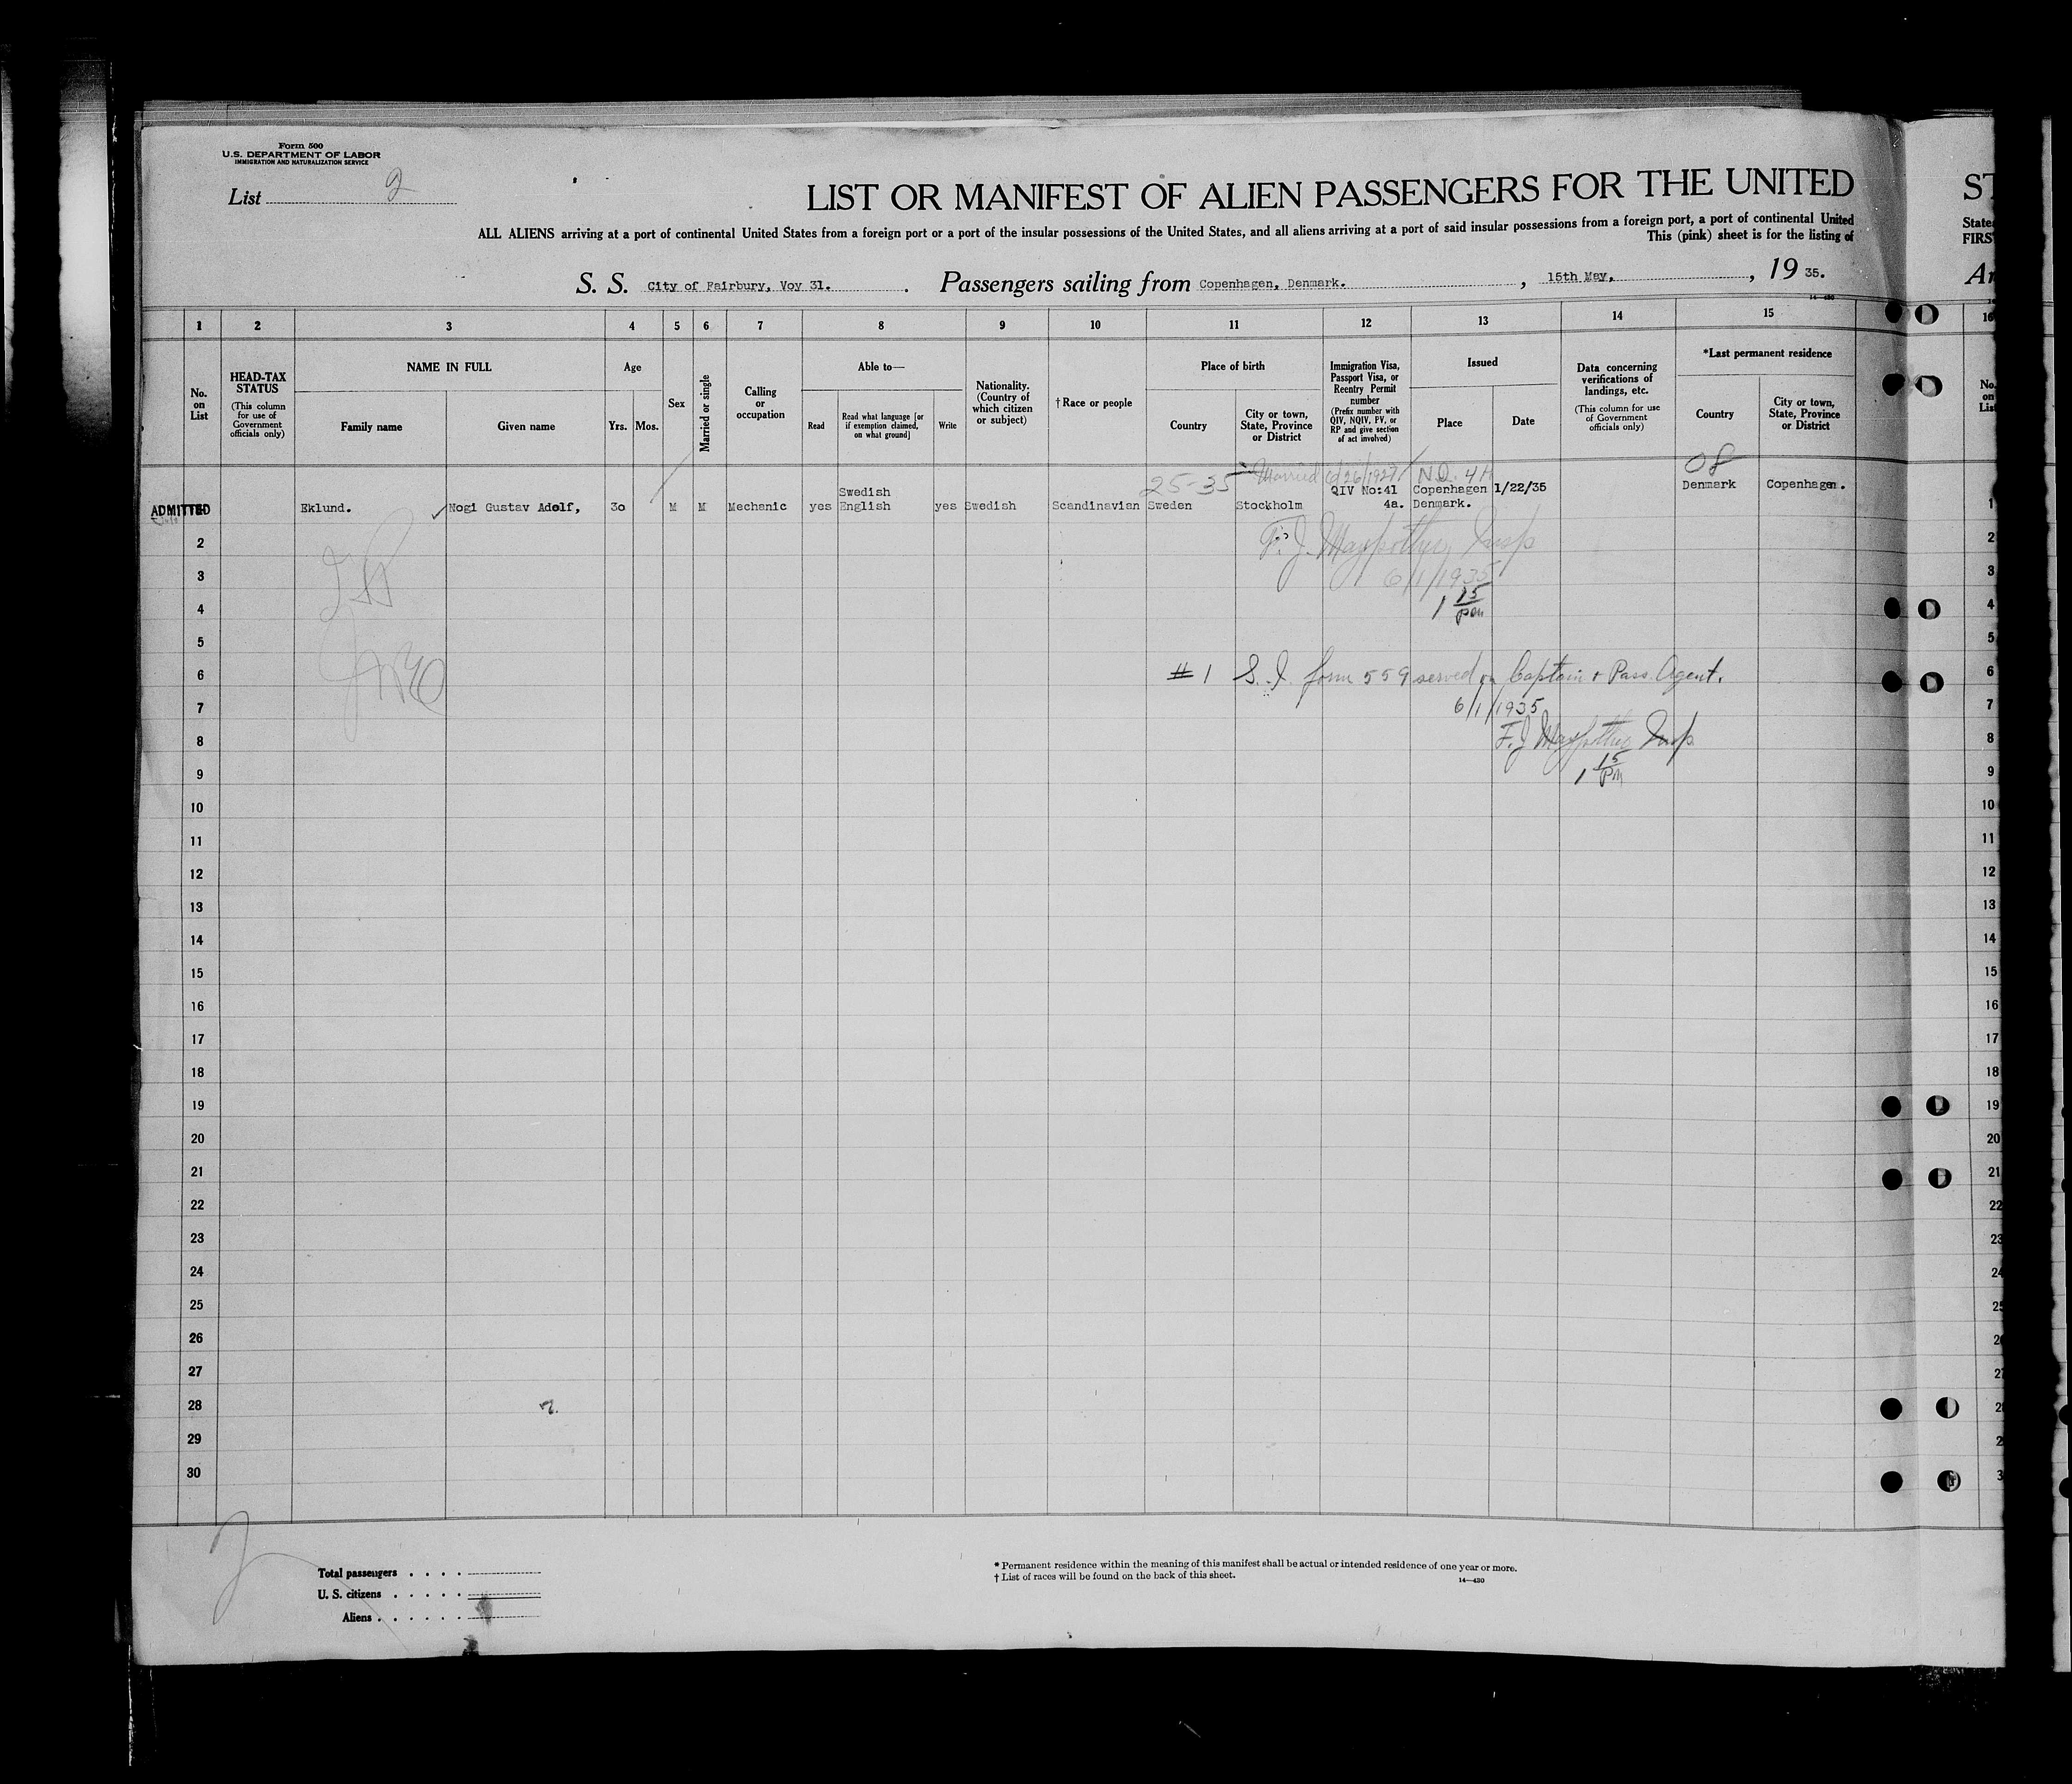 Form 500
U.S. DEPARTMENT OF LABOR
IMMIGRATION AND NATURALIZATION SERVICE
List 2
LIST OR MANIFEST OF ALIEN PASSENGERS FOR THE UNITED
ALL ALIENS arriving at a port of continental United States from a foreign port or a port of the insular possessions of the United States, and all aliens arriving at a port of said insular possessions from a foreign port, a port of continental United
This (pink) sheet is for the listing of
S. S. City of Fairbury, Voy 31. Passengers sailing from Copenhagen, Denmark. , 15th May, , 19 35.
14—430
1 2 3 4 5 6 7 8 9 10 11 12 13 14 15
No. on List
HEAD-TAX STATUS
(This column for use of Government officials only)
NAME IN FULL
Family name
Given name
Age
Yrs. Mos.
Sex
Married or single
Calling or occupation
Able to—
Read
Read what language [or if exemption claimed, on what ground]
Write
Nationality. (Country of which citizen or subject)
†Race or people
Place of birth
Country
City or town, State, Province or District
Immigration Visa, Passport Visa, or Reentry Permit number
(Prefix number with QIV, NQIV, PV, or RP and give section of act involved)
Issued
Place
Date
Data concerning verifications of landings, etc.
(This column for use of Government officials only)
*Last permanent residence
Country
City or town, State, Province or District
25-35 Married 6/26/1927 N.D. 4H 08
ADMITTED Eklund. Nogi Gustav Adolf, 3o M M Mechanic yes Swedish English yes Swedish Scandinavian Sweden Stockholm QIV No:41 4a. Copenhagen Denmark. 1/22/35 Denmark Copenhagen. 1
2 F. J. Insp 2
3 6/1/1935 3
4 1 15 pm 4
5 5
6 #1 S. I. form 559 served on Captain + Pass. Agent. 6
7 6/1/1935 7
8 F. J. Insp 8
9 1 15 PM 9
10 10
11 11
12 12
13 13
14 14
15 15
16 16
17 17
18 18
19 19
20 20
21 21
22 22
23 23
24 24
25 25
26 26
27 27
28 28
29 29
30 30
Total passengers
U. S. citizens
Aliens
* Permanent residence within the meaning of this manifest shall be actual or intended residence of one year or more.
† List of races will be found on the back of this sheet.
14—430
ST
States
FIRS
Ar
16
No. on List